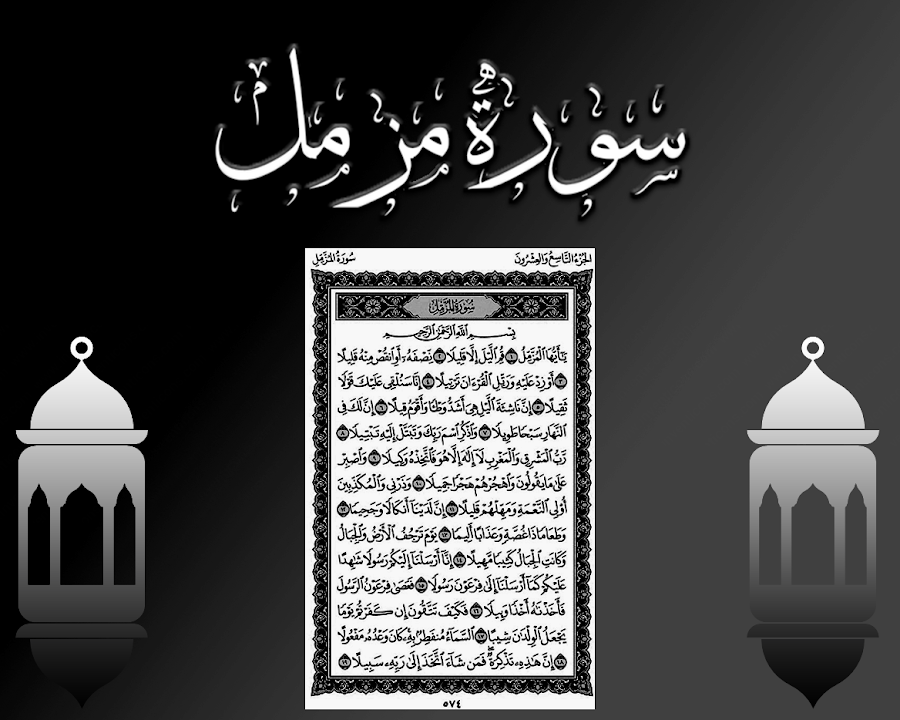 سورة مزمل
الجزء التاسع والعشرون
سورة المزمل
سورة المزمل
بِسْمِ ٱللَّهِ ٱلرَّحْمَٰنِ ٱلرَّحِيمِ
يَٰٓأَيُّهَا ٱلْمُزَّمِّلُ ١ قُمِ ٱلَّيْلَ إِلَّا قَلِيلًا ٢ نِّصْفَهُۥٓ أَوِ ٱنقُصْ مِنْهُ قَلِيلًا
٣ أَوْ زِدْ عَلَيْهِ وَرَتِّلِ ٱلْقُرْءَانَ تَرْتِيلًا ٤ إِنَّا سَنُلْقِى عَلَيْكَ قَوْلًا
ثَقِيلًا ٥ إِنَّ نَاشِئَةَ ٱلَّيْلِ هِىَ أَشَدُّ وَطْـًٔا وَأَقْوَمُ قِيلًا ٦ إِنَّ لَكَ فِى
ٱلنَّهَارِ سَبْحًا طَوِيلًا ٧ وَٱذْكُرِ ٱسْمَ رَبِّكَ وَتَبَتَّلْ إِلَيْهِ تَبْتِيلًا ٨
رَّبُّ ٱلْمَشْرِقِ وَٱلْمَغْرِبِ لَآ إِلَٰهَ إِلَّا هُوَ فَٱتَّخِذْهُ وَكِيلًا ٩ وَٱصْبِرْ
عَلَىٰ مَا يَقُولُونَ وَٱهْجُرْهُمْ هَجْرًا جَمِيلًا ١٠ وَذَرْنِى وَٱلْمُكَذِّبِينَ
أُو۟لِى ٱلنَّعْمَةِ وَمَهِّلْهُمْ قَلِيلًا ١١ إِنَّ لَدَيْنَآ أَنكَالًا وَجَحِيمًا ١٢
وَطَعَامًا ذَا غُصَّةٍ وَعَذَابًا أَلِيمًا ١٣ يَوْمَ تَرْجُفُ ٱلْأَرْضُ وَٱلْجِبَالُ
وَكَانَتِ ٱلْجِبَالُ كَثِيبًا مَّهِيلًا ١٤ إِنَّآ أَرْسَلْنَآ إِلَيْكُمْ رَسُولًا شَٰهِدًا
عَلَيْكُمْ كَمَآ أَرْسَلْنَآ إِلَىٰ فِرْعَوْنَ رَسُولًا ١٥ فَعَصَىٰ فِرْعَوْنُ ٱلرَّسُولَ
فَأَخَذْنَٰهُ أَخْذًا وَبِيلًا ١٦ فَكَيْفَ تَتَّقُونَ إِن كَفَرْتُمْ يَوْمًا
يَجْعَلُ ٱلْوِلْدَٰنَ شِيبًا ١٧ ٱلسَّمَآءُ مُنفَطِرٌۢ بِهِۦ كَانَ وَعْدُهُۥ مَفْعُولًا
١٨ إِنَّ هَٰذِهِۦ تَذْكِرَةٌ فَمَن شَآءَ ٱتَّخَذَ إِلَىٰ رَبِّهِۦ سَبِيلًا ١٩
٥٧٤